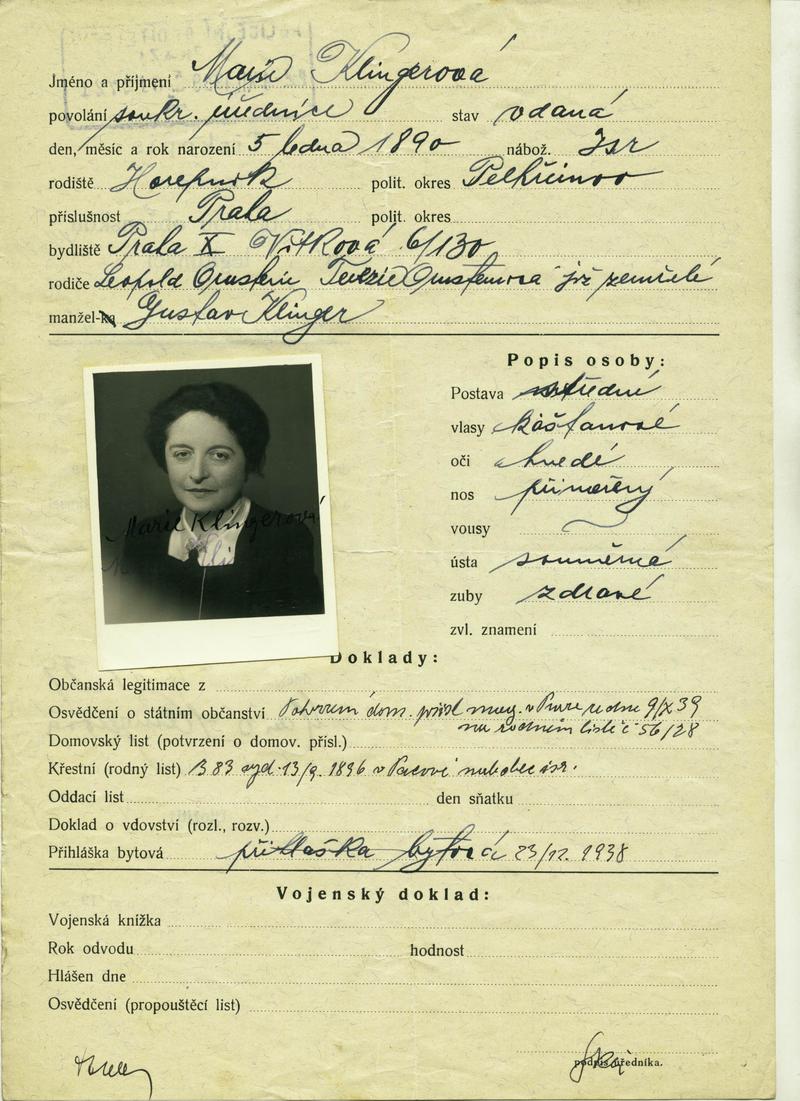 Jméno a příjmení Marie Klingerová
povolání soukr. úřednice stav vdaná
den, měsíc a rok narození 5 ledna 1890 nábož. Isr
rodiště Horepnik polit. okres Pelhřimov
příslušnost Praha polit. okres
bydliště Praha X Vítková 6/130
rodiče Leopold Ornstein Terezie Ornsteinova již zemřelí
manžel-ka Gustav Klinger
Popis osoby:
Postava střední
vlasy kaštanové
oči hnedé
nos přiměřený
vousy
ústa souměrná
zuby zdravé
zvl. znamení
Marie Klingerová
Doklady:
Občanská legitimace z
Osvědčení o státním občanství dom. v ze dne 9/X 39
na rodném listě č 56/28
Domovský list (potvrzení o domov. přísl.)
Křestní (rodný list) 383 vyd. 13/9. 1896 v Pacově isr.
Oddací list den sňatku
Doklad o vdovství (rozl., rozv.)
Přihláška bytová přihláška bytová 23/12. 1938
Vojenský doklad:
Vojenská knížka
Rok odvodu hodnost
Hlášen dne
Osvědčení (propouštěcí list)
podpis úředníka.